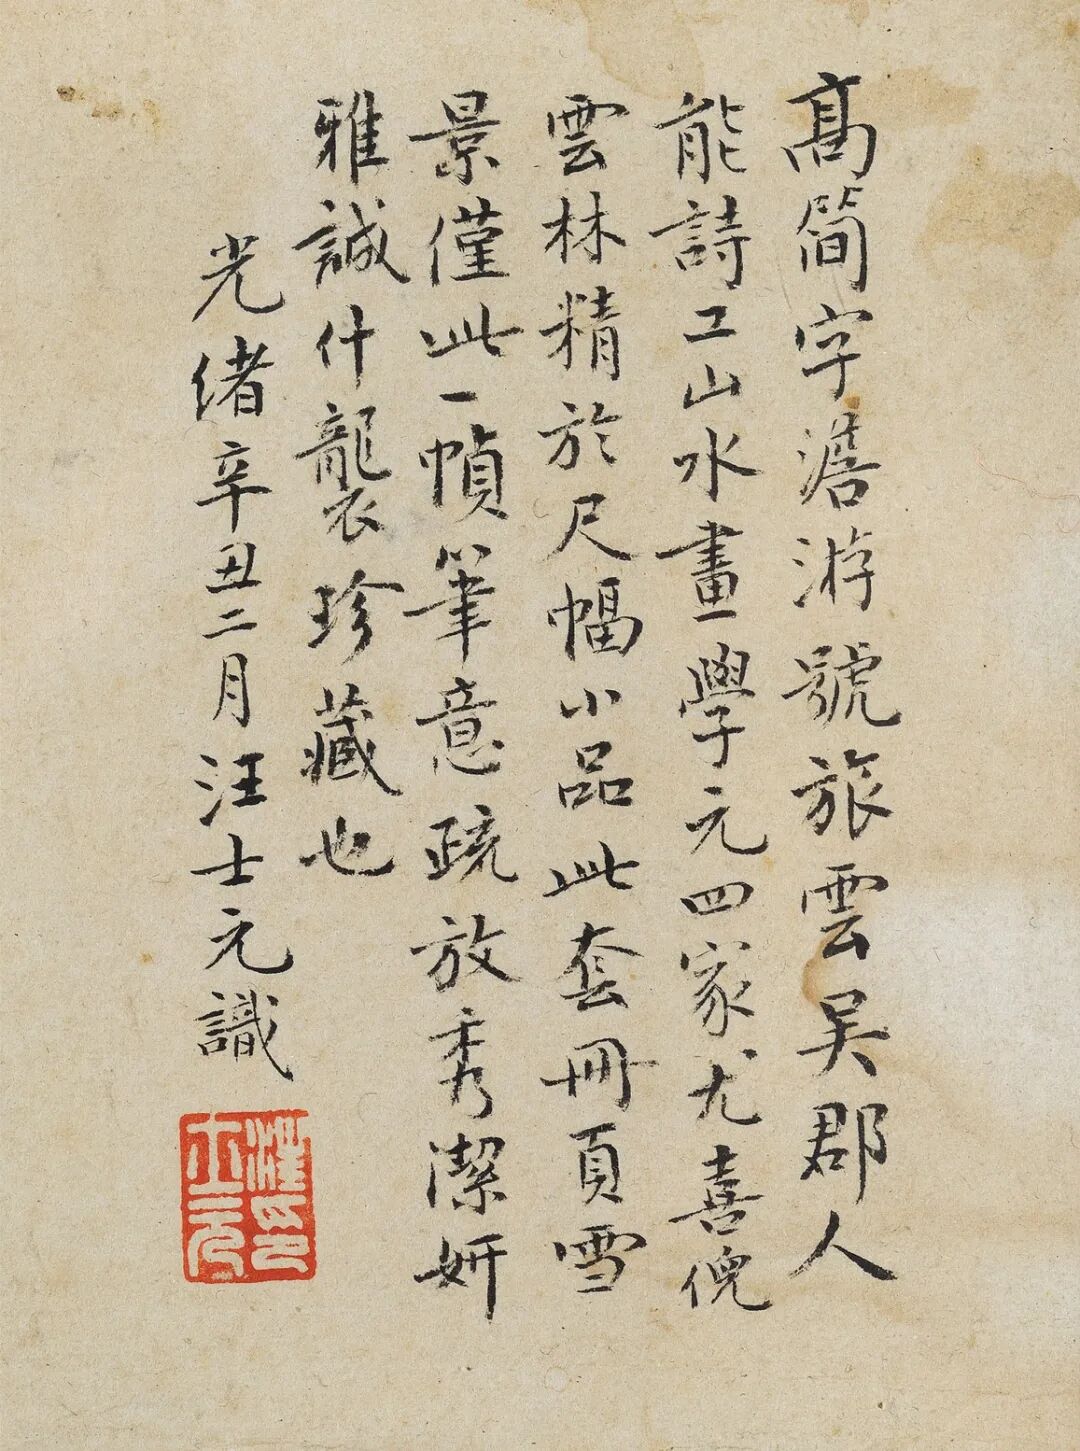 高簡字澹游號旅雲吴郡人
能詩工山水畫學元四家尤喜倪
雲林精於尺幅小品此套冊頁雪
景僅此一幀筆意疏放秀潔妍
雅誠什襲珍藏也
光绪辛丑二月汪士元識
汪士元印